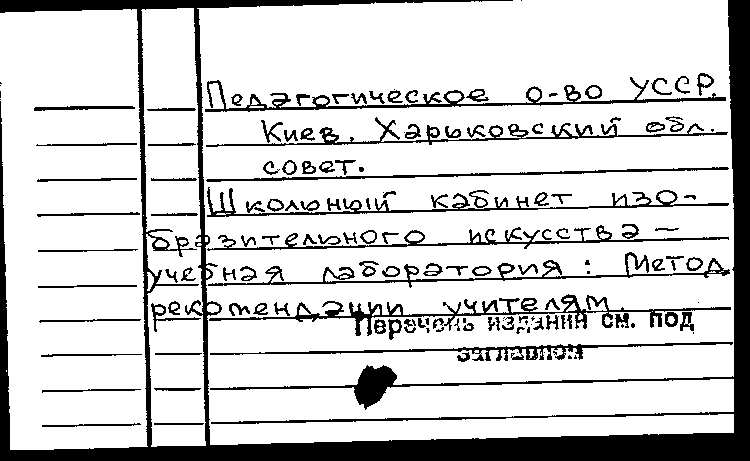 Педагогическое о-во УССР.
Киев. Харьковский обл.
совет.
Школьный кабинет изо-
бразительного искусства –
учебная лаборатория : Метод.
рекомендации учителям.
Перечень изданий см. под
заглавном